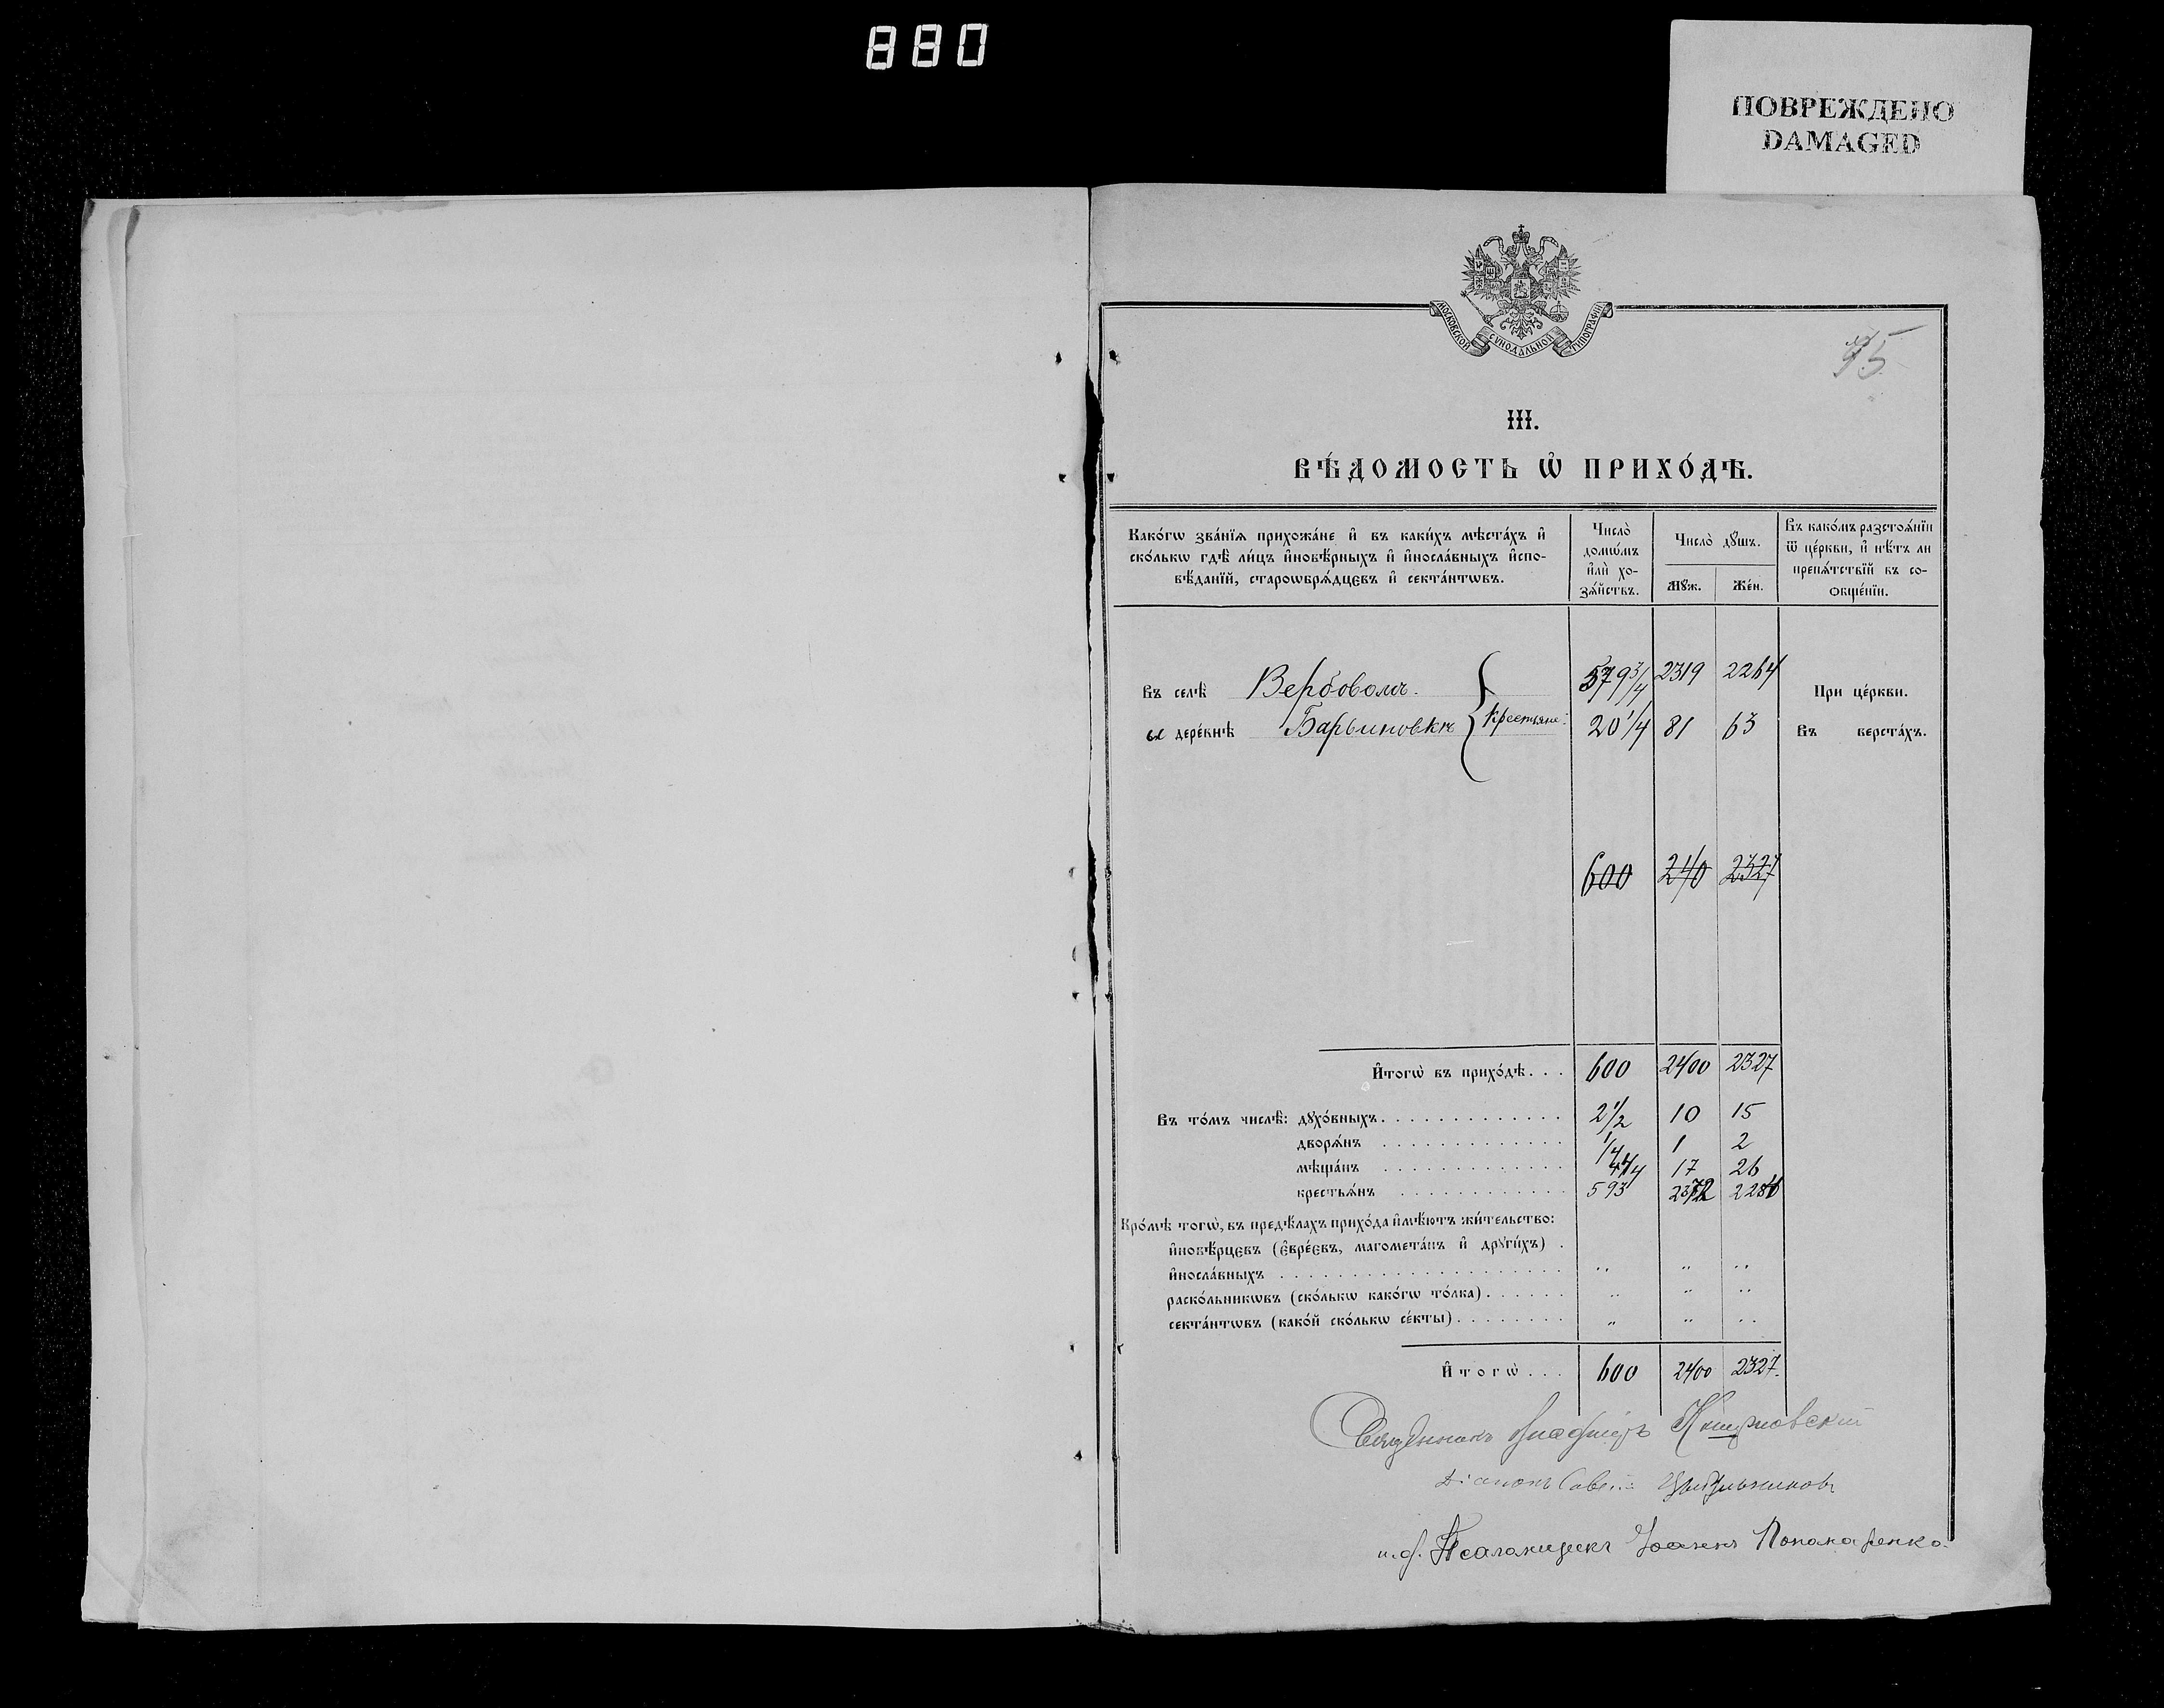 880
ПОВРЕЖДЕНО
DAMAGED
МОСКОВСКОЙ СѴНОДАЛЬНОЙ ТИПОГРАФІИ
95
III.
ВѢ́ДОМОСТЬ Ѡ҆ ПРИХО́ДѢ.
Како́гѡ зва́нїѧ прихожа́не и҆ въ каки́хъ мѣста́хъ и҆
ско́лькѡ гдѣ̀ ли́цъ и҆новѣ́рныхъ и҆ и҆носла́вныхъ и҆спо-
вѣ́данїй, старѡѡбрѧ́дцевъ и҆ секта́нтѡвъ.
Число̀
домѡ́мъ
и҆лѝ хо-
зѧ́йствъ.
Число̀ дꙋ́шъ.
Мꙋ́ж. Же́н.
Въ како́мъ разстоѧ́нїи
ѿ це́ркви, и҆ нѣ́тъ ли
препѧ́тствїй къ со-
ѻбще́нїи.
въ селѣ̀ Вербовомъ. 579 3/4 2319 2264 При це́ркви.
въ дере́внѣ Барвиновкѣ Крестьяне. 20 1/4 81 63 Въ верста́хъ.
600 240 2327
И҆тогѡ̀ въ прихо́дѣ. . . 600 2400 2327
Въ то́мъ числѣ̀: дꙋхо́вныхъ. 2 1/2 10 15
дворѧ́нъ 1/4 1 2
мѣща́нъ 17 26
крестьѧ́нъ 593
Кро́мѣ тогѡ̀, въ предѣ́лахъ прихо́да и҆мѣ́ютъ жи́тельство:
и҆новѣ́рцевъ (є҆вре́євъ, магомета́нъ и҆ дрꙋги́хъ) .
и҆носла́вныхъ „ „ „
раско́льникѡвъ (ско́лькѡ како́гѡ то́лка). „ „ „
секта́нтѡвъ (како́й ско́лькѡ се́кты). „ „ „
И҆тогѡ̀ . . . 600 2400 2327.
Священникъ Владиміръ
Діаконъ Савв
и. д. Псаломщикъ Іоаннъ Пономаренко.